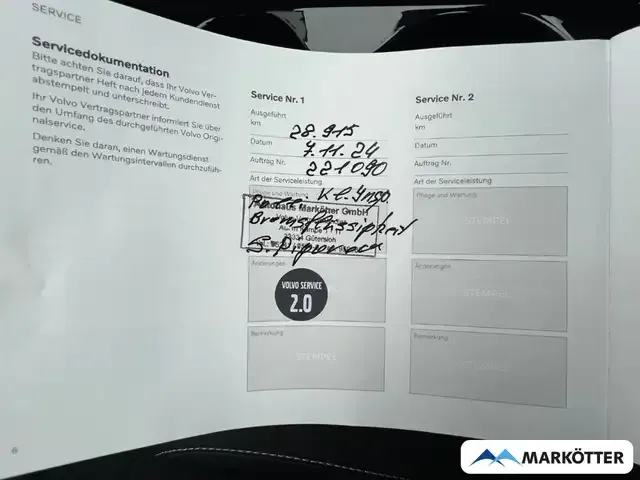 SERVICE
Servicedokumentation
Bitte achten Sie darauf, dass Ihr Volvo Ver-
tragspartner Heft nach jedem Kundendienst
abstempelt und unterschreibt.
Ihr Volvo Vertragspartner informiert Sie über
den Umfang des durchgeführten Volvo Origi-
nalservice.
Denken Sie daran, einen Wartungsdienst
gemäß den Wartungsintervallen durchzufüh-
ren.
Service Nr. 1
Ausgeführt
km 28.915
Datum 7.11.24
Auftrag Nr. 221090
Art der Serviceleistung
Pflege und Wartung
Kl. Insp.
Autohaus Markötter GmbH
Bremsflüssigkeit
Gütersloh
Änderungen
VOLVO SERVICE
2.0
Bemerkung
STEMPEL
Service Nr. 2
Ausgeführt
km
Datum
Auftrag Nr.
Art der Serviceleistung
Pflege und Wartung
STEMPEL
Änderungen
STEMPEL
Bemerkung
STEMPEL
MARKÖTTER